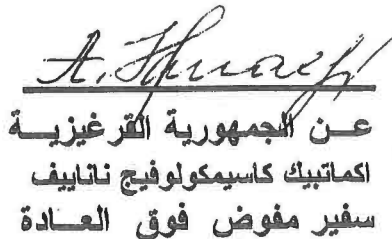 عـن الجمهورية القرغيزيـة
اكماتبيك كاسيمكولوفيج ناناييف
سفير مفوض فوق العـادة